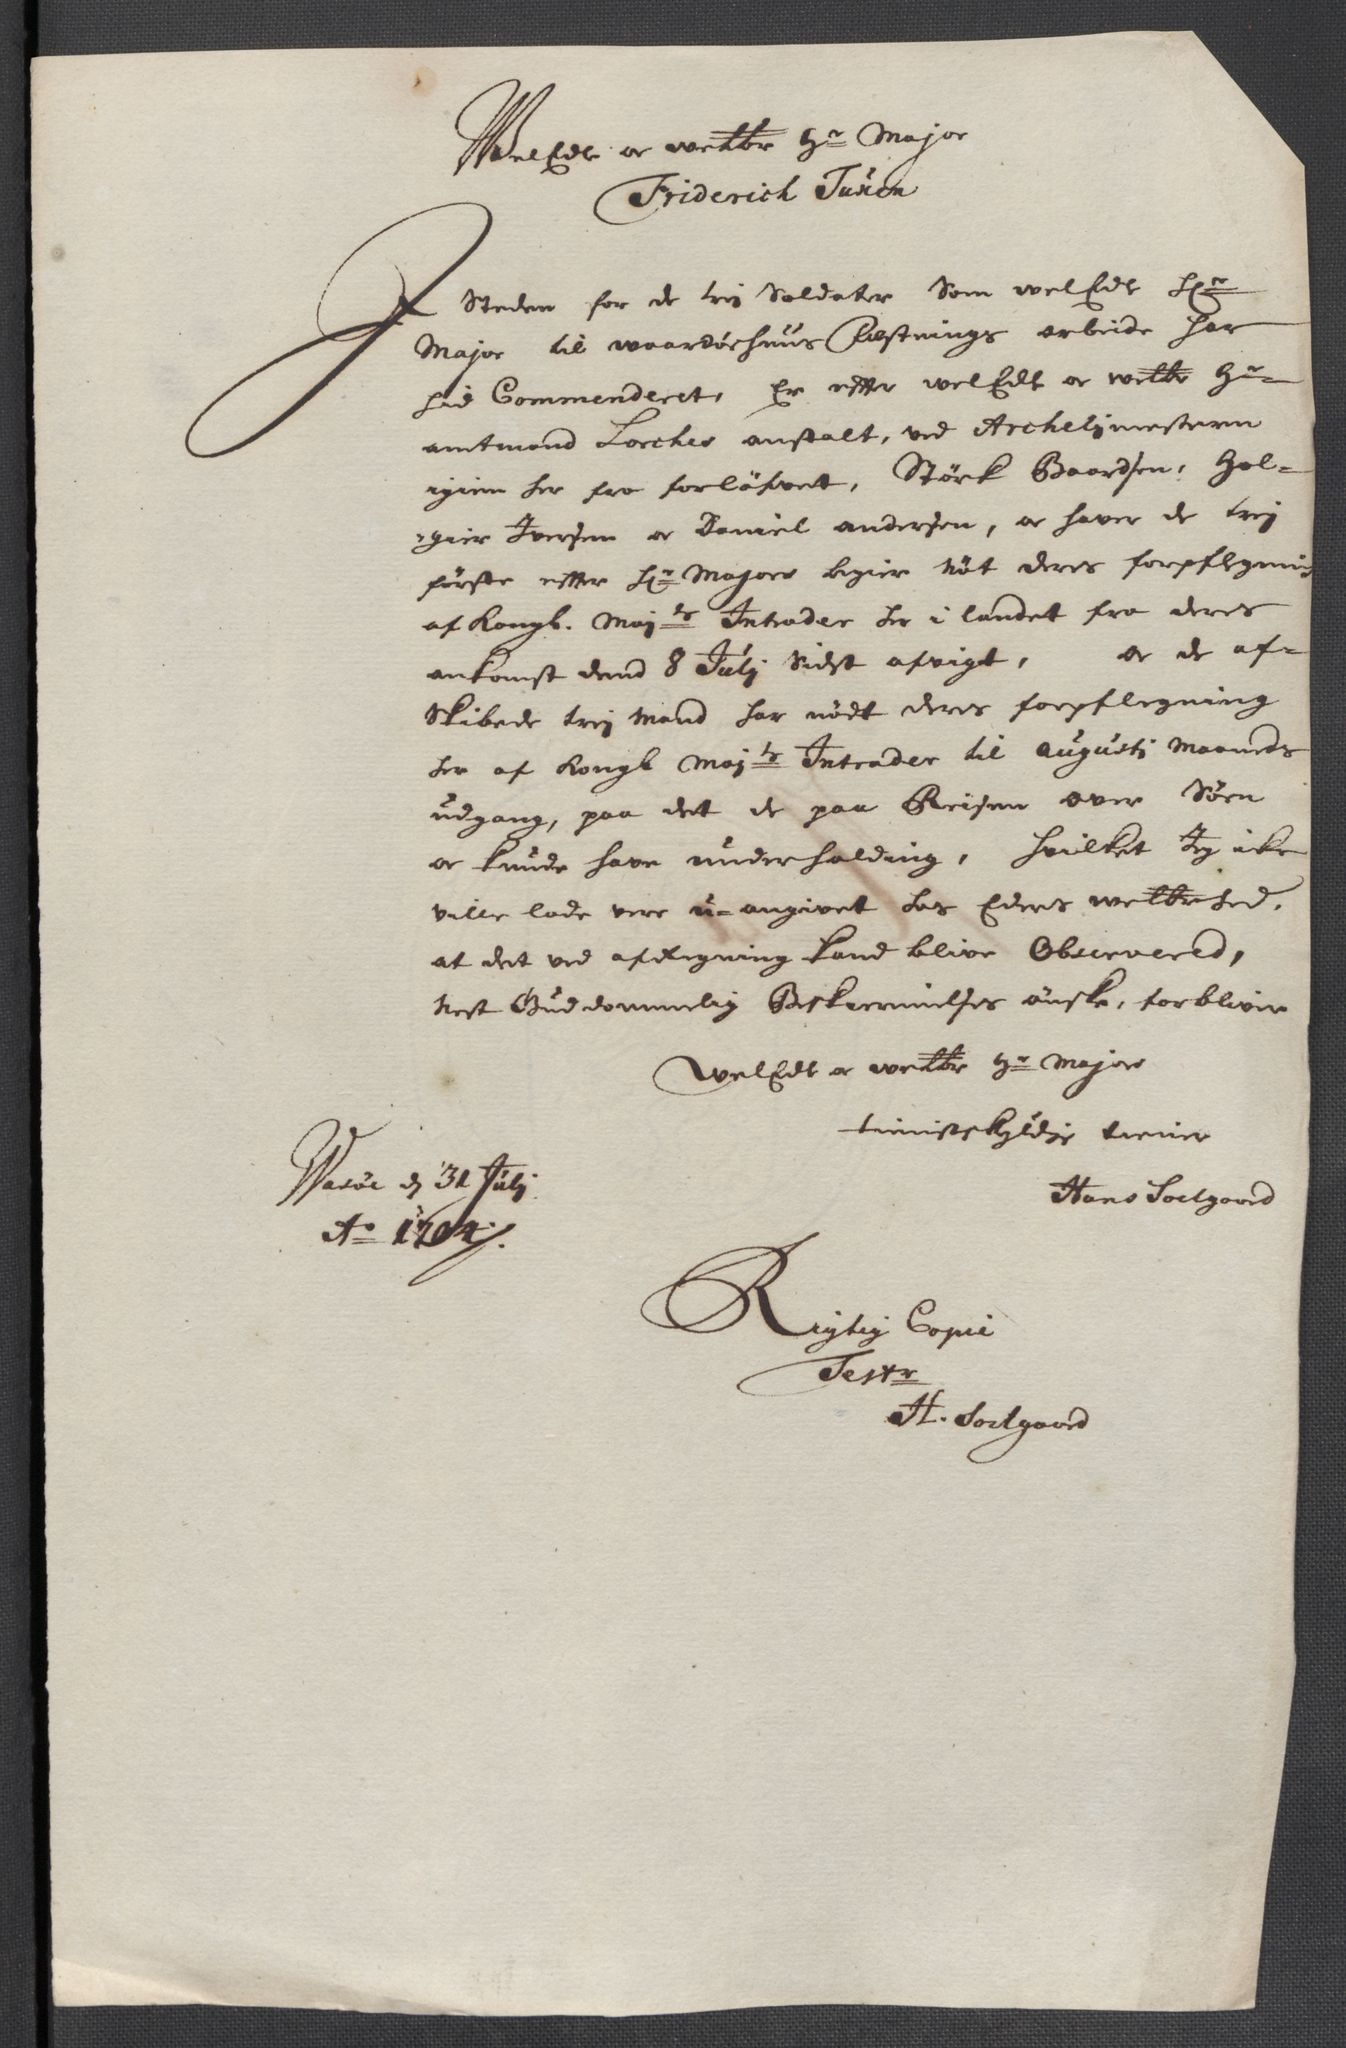 WelEdle oc welbr Hr Major
Friderich Tuxen
I Steden for de trej Soldater Som welEdle Hr
Major til waardøehuus Fæstnings arbeide har
hid Commenderet, Er efter welEdle oc welbr Hr
amtmand Lorches anstalt, ved Archelijmesteren
igien her fra forløfvet, Størk Baardsen, Hol-
gier Iversen oc Daniel andersen, oc haver de trej
første efter Hr Majors begier nöt deres forpflegning
af Kongl. Majts Intrader her i landet fra deres
ankomst dend 8 Julij Sidst afvigt, oc de af-
Skibede trej Mand har nödt deres forpflegning
her af Kongl Majts Intrader til Augustj Maaneds
udgang, paa det de paa Reisen over Søen
oc kunde have underholding, hvilket Jeg icke
ville lade vere u-angivet hos Eders welbrhed,
at det ved afregning kand blive Observered,
Nest Guddommelig Beskiermelses ønske, forblive
WelEdle oc welbr Hr Majors
tienistskyldige tiener
Hans Soelgaard
Wadsøe d 31 Julij
Ao 1704.
Rigtig Copie
Testr
H. Soelgaard